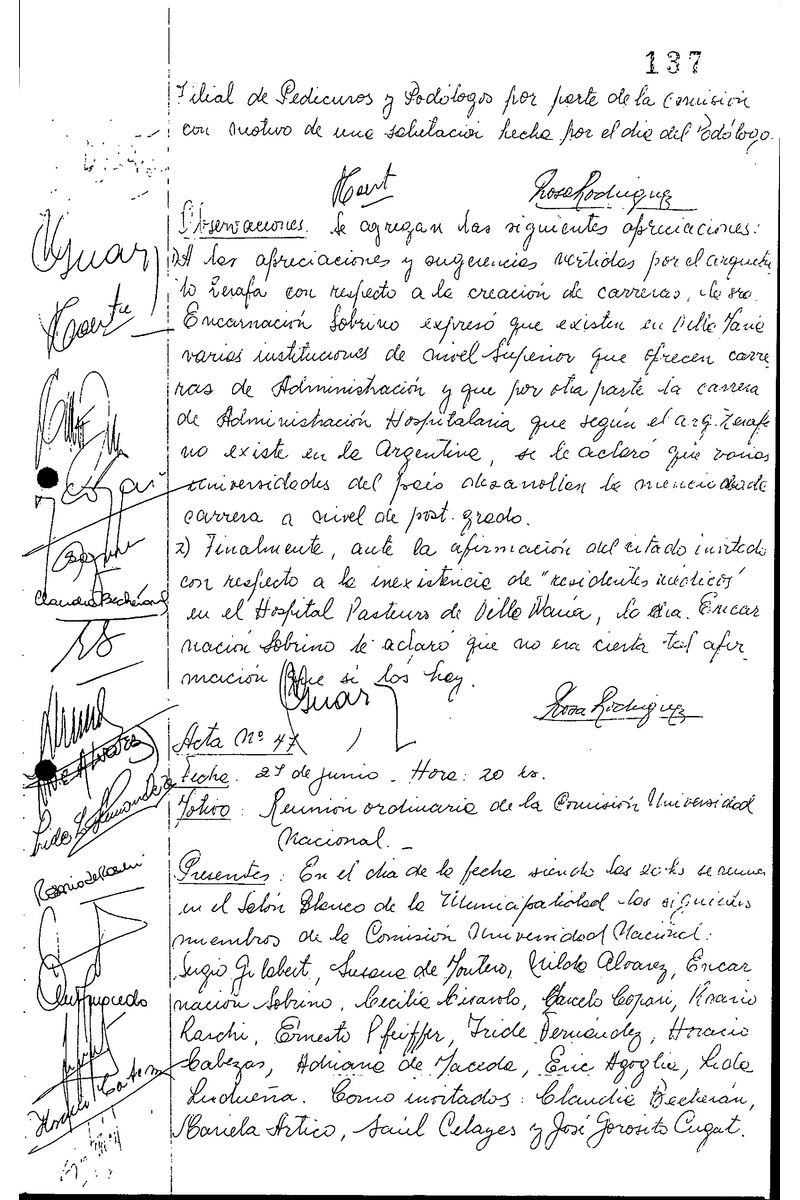 137
Filial de Pedicuros y Podólogos por parte de la Comisión
con motivo de una salutación hecha por el día del Podólogo.
Rosa Rodriguez
Observaciones. Se agregan las siguientes apreciaciones:
1) A las apreciaciones y sugerencias vertidas por el arquitec
to Zarafa con respecto a la creación de carreras, la sra.
Encarnación Sobrino expresó que existen en Villa María
varias instituciones de nivel Superior que ofrecen carre
ras de Administración y que por otra parte la carrera
de Administración Hospitalaria que según el arq. Zarafa
no existe en la Argentina, se le aclaró que varias
universidades del país desarrollan la mencionada
carrera a nivel de post. grado.
2) Finalmente, ante la afirmación del citado invitado
con respecto a la inexistencia de "residentes médicos"
en el Hospital Pasteurs de Villa María, la sra. Encar
nación Sobrino le aclaró que no era cierta tal afir
mación que si los hay.
Rosa Rodriguez
Acta Nº 47
Fecha: 27 de junio - Hora: 20 hs.
Motivo: Reunión ordinaria de la Comisión Universidad
Nacional. _
Presentes: En el día de la fecha siendo las 20 hs se reunen
en el Salón Blanco de la Municipalidad los siguientes
miembros de la Comisión Universidad Nacional:
Sergio Gilabert, Susana de Montero, Nilda Alvarez, Encar
nación Sobrino, Cecilia Cisarolo, Marcelo Copari, Rosario
Raschi, Ernesto Pfeiffer, Iride Fernández, Horacio
Cabezas, Adriana de Maceda, Eric Agoglia, Lida
Ludueña. Como invitados: Claudia Becherán,
Mariela Artico, Saúl Celayes y José Gorosito Cugat.
Claudia Becherán